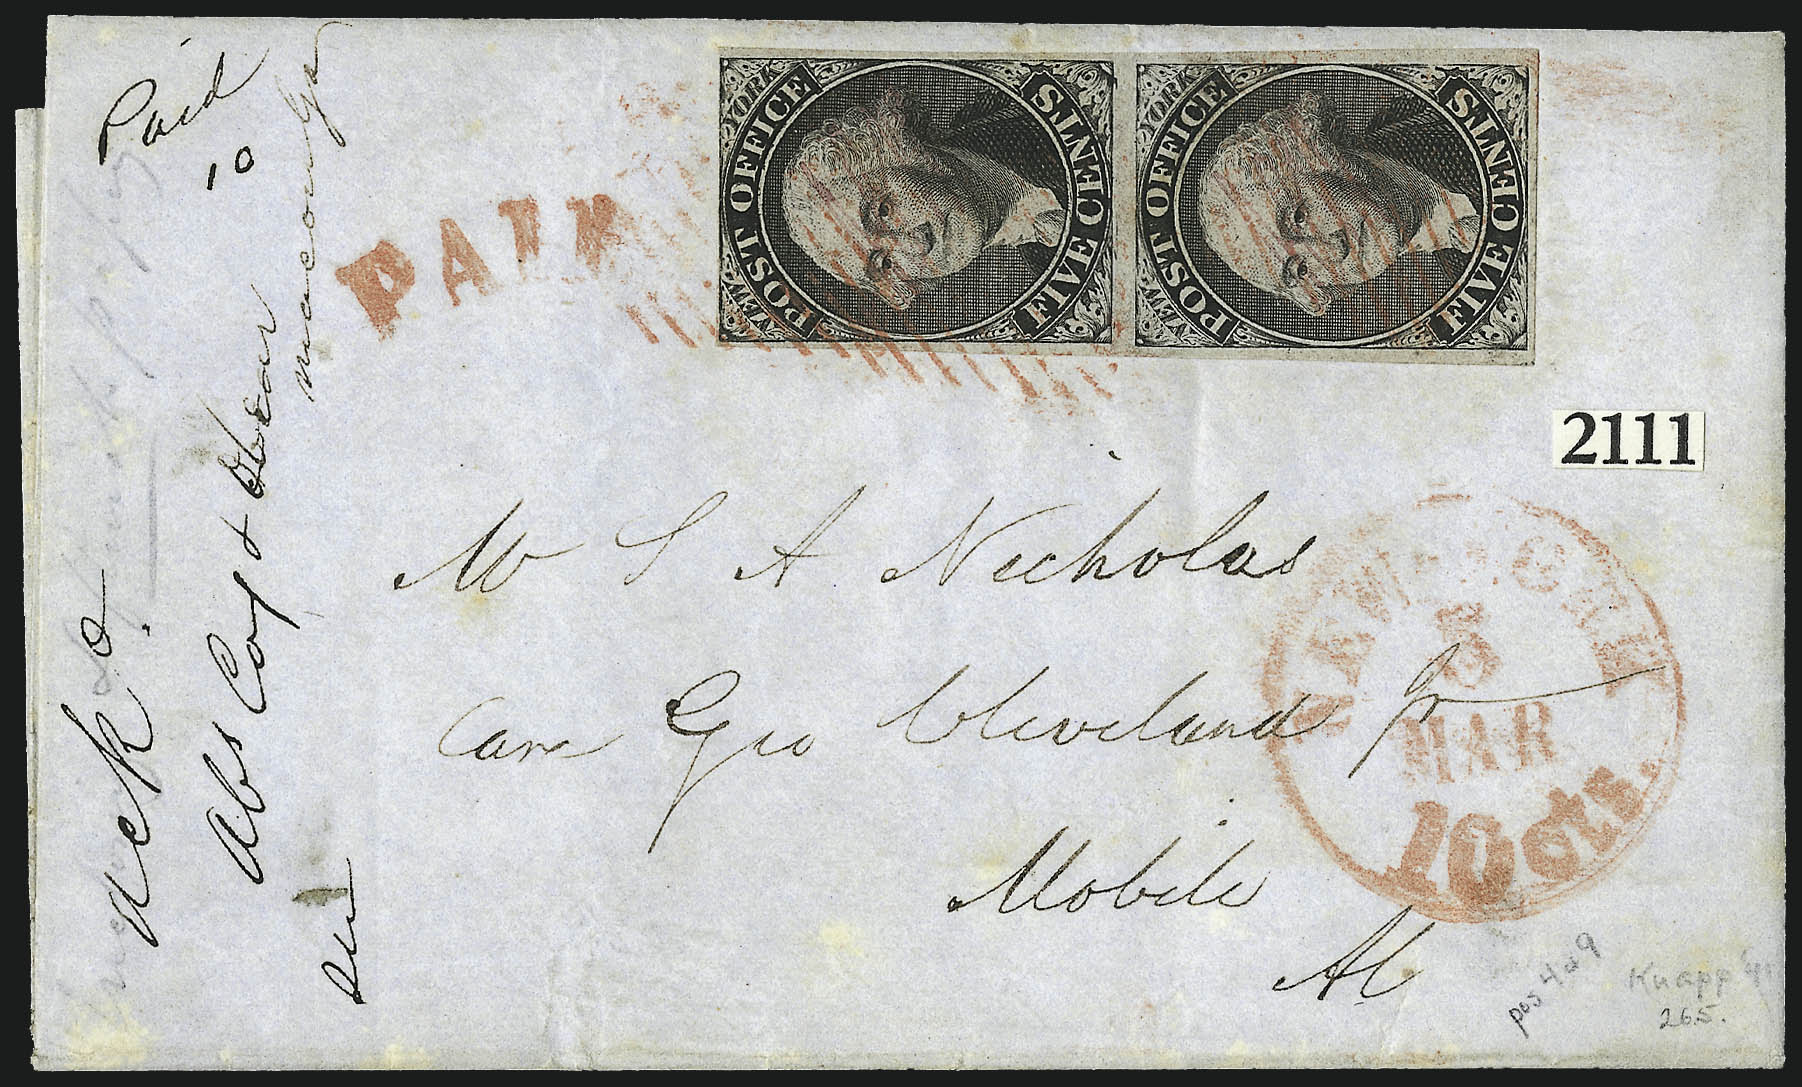 Paid
10
PAID
NEW YORK
POST OFFICE
FIVE CENTS
NEW YORK
POST OFFICE
FIVE CENTS
2111
Mr S A Nicholas
Care Geo Cleveland Jr
Mobile
Al
NEW YORK
3
MAR
10 cts.
ack
Abs Coy
pos 4 & 9
Knapp '41
265.